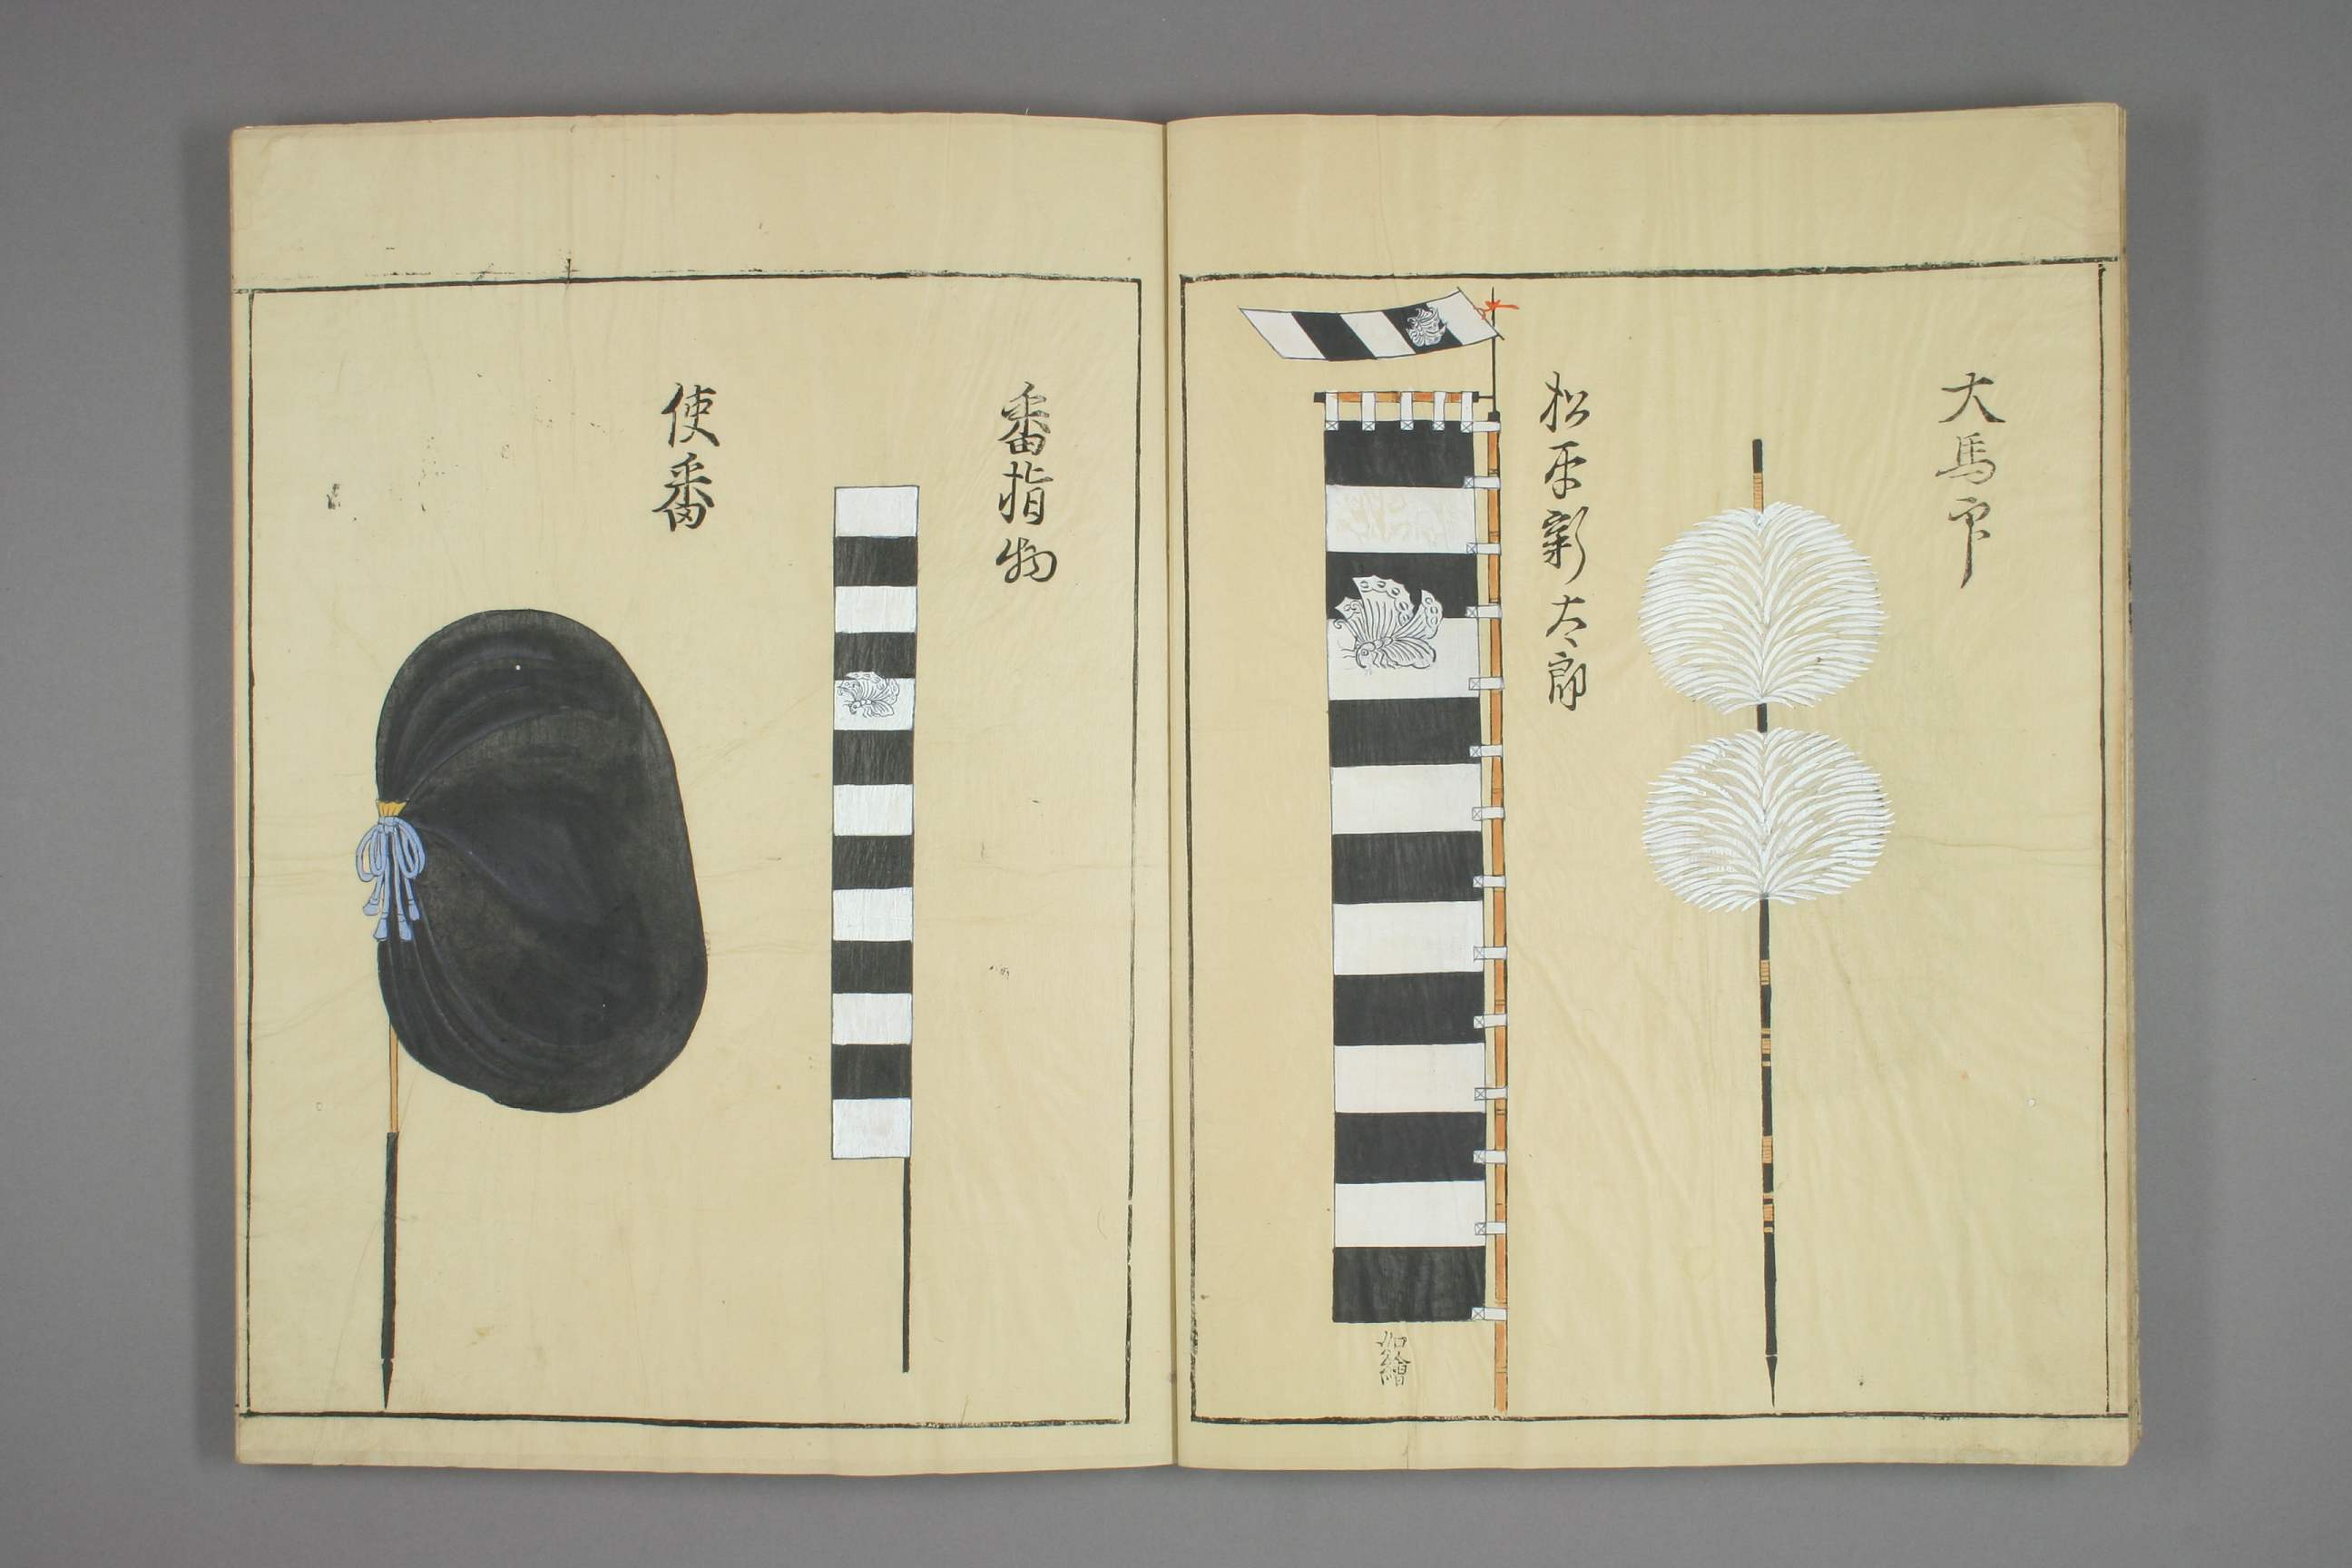 大馬印
松平新太郎
如繪
番指物
使番